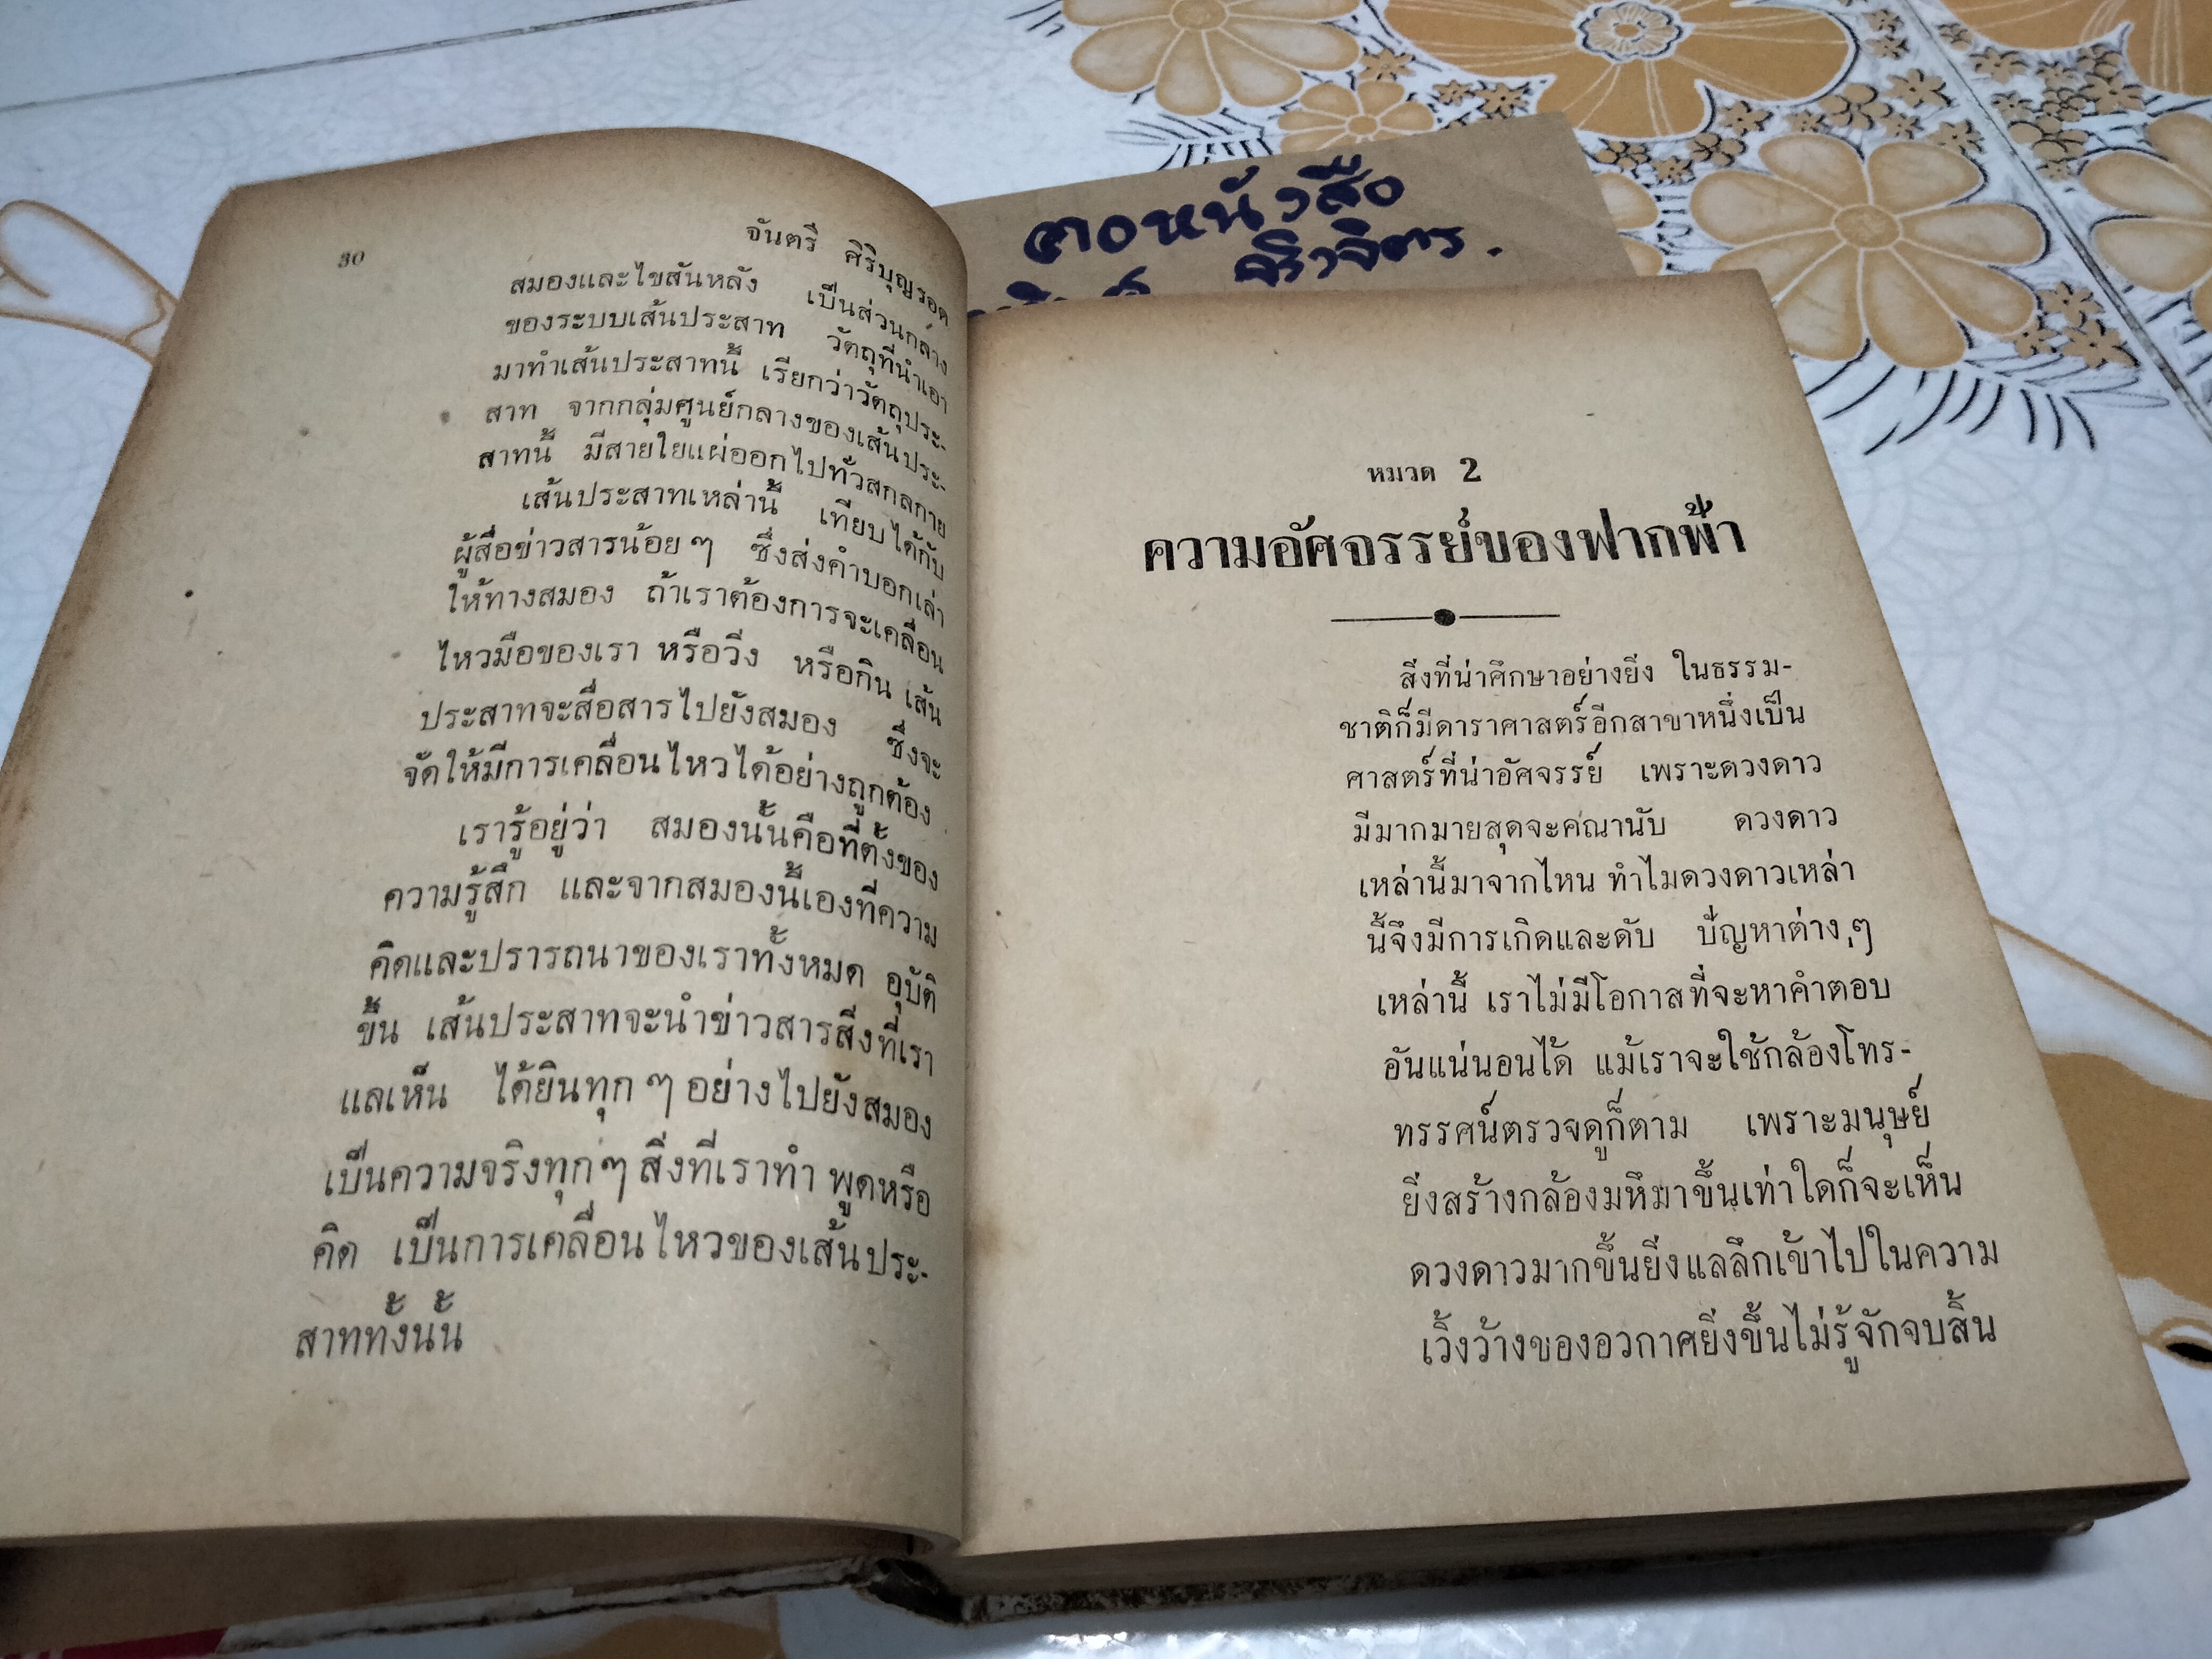 คอหนังสือ
จิรวจิตร.
30
จันตรี ศิริบุญรอด
สมองและไขสันหลัง เป็นส่วนกลาง
ของระบบเส้นประสาท วัตถุที่นำเอา
มาทำเส้นประสาทนี้ เรียกว่าวัตถุประ-
สาท จากกลุ่มศูนย์กลางของเส้นประ-
สาทนี้ มีสายใยแผ่ออกไปทั่วสกลกาย
เส้นประสาทเหล่านี้ เทียบได้กับ
ผู้สื่อข่าวสารน้อย ๆ ซึ่งส่งคำบอกเล่า
ให้ทางสมอง ถ้าเราต้องการจะเคลื่อน
ไหวมือของเรา หรือวิ่ง หรือกิน เส้น
ประสาทจะสื่อสารไปยังสมอง ซึ่งจะ
จัดให้มีการเคลื่อนไหวได้อย่างถูกต้อง
เรารู้อยู่ว่า สมองนั้นคือที่ตั้งของ
ความรู้สึก และจากสมองนี้เองที่ความ
คิดและปรารถนาของเราทั้งหมด อุบัติ
ขึ้น เส้นประสาทจะนำข่าวสารสิ่งที่เรา
แลเห็น ได้ยินทุก ๆ อย่างไปยังสมอง
เป็นความจริงทุก ๆ สิ่งที่เราทำ พูดหรือ
คิด เป็นการเคลื่อนไหวของเส้นประ-
สาททั้งนั้น
หมวด 2
ความอัศจรรย์ของฟากฟ้า
สิ่งที่น่าศึกษาอย่างยิ่ง ในธรรม-
ชาติก็มีดาราศาสตร์อีกสาขาหนึ่งเป็น
ศาสตร์ที่น่าอัศจรรย์ เพราะดวงดาว
มีมากมายสุดจะคณานับ ดวงดาว
เหล่านี้มาจากไหน ทำไมดวงดาวเหล่า
นี้จึงมีการเกิดและดับ ปัญหาต่าง ๆ
เหล่านี้ เราไม่มีโอกาสที่จะหาคำตอบ
อันแน่นอนได้ แม้เราจะใช้กล้องโทร-
ทรรศน์ตรวจดูก็ตาม เพราะมนุษย์
ยิ่งสร้างกล้องมหึมาขึ้นเท่าใดก็จะเห็น
ดวงดาวมากขึ้นยิ่งแลลึกเข้าไปในความ
เวิ้งว้างของอวกาศยิ่งขึ้นไม่รู้จักจบสิ้น